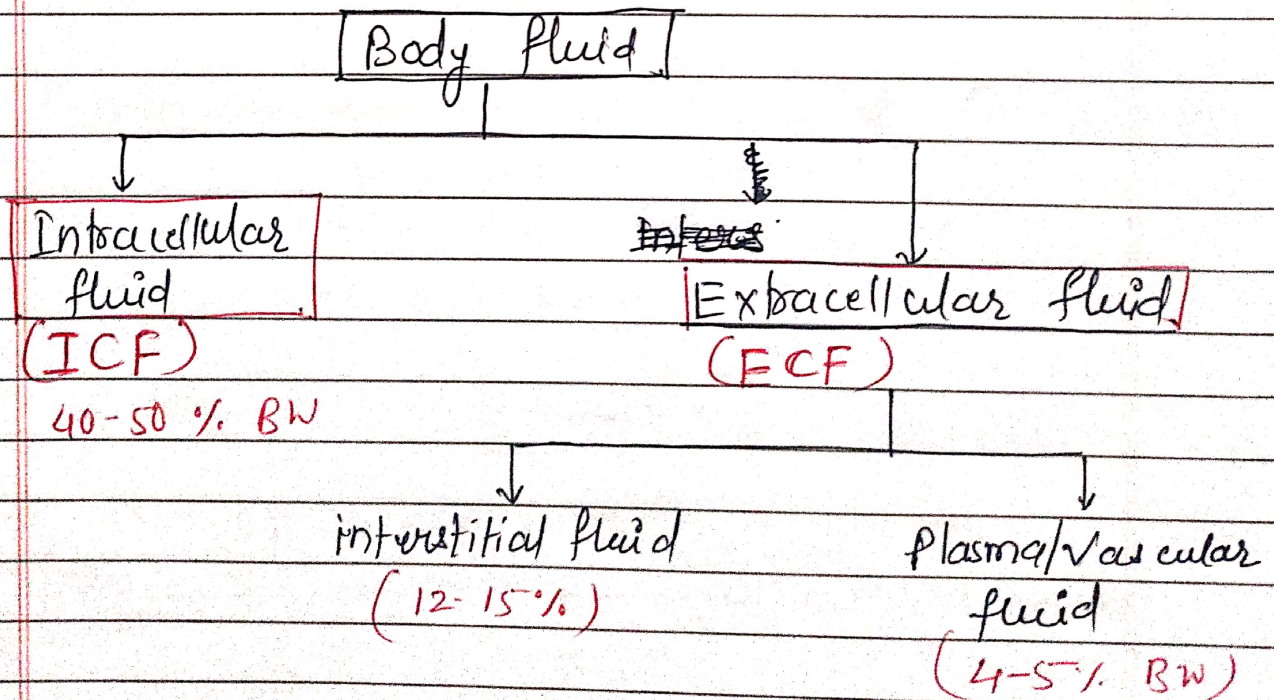 Body fluid.
Intracellular
fluid
(ICF)
40-50 % BW
Extracellular fluid
(ECF)
interstitial fluid
(12-15%)
Plasma/Vascular
fluid
(4-5% BW)